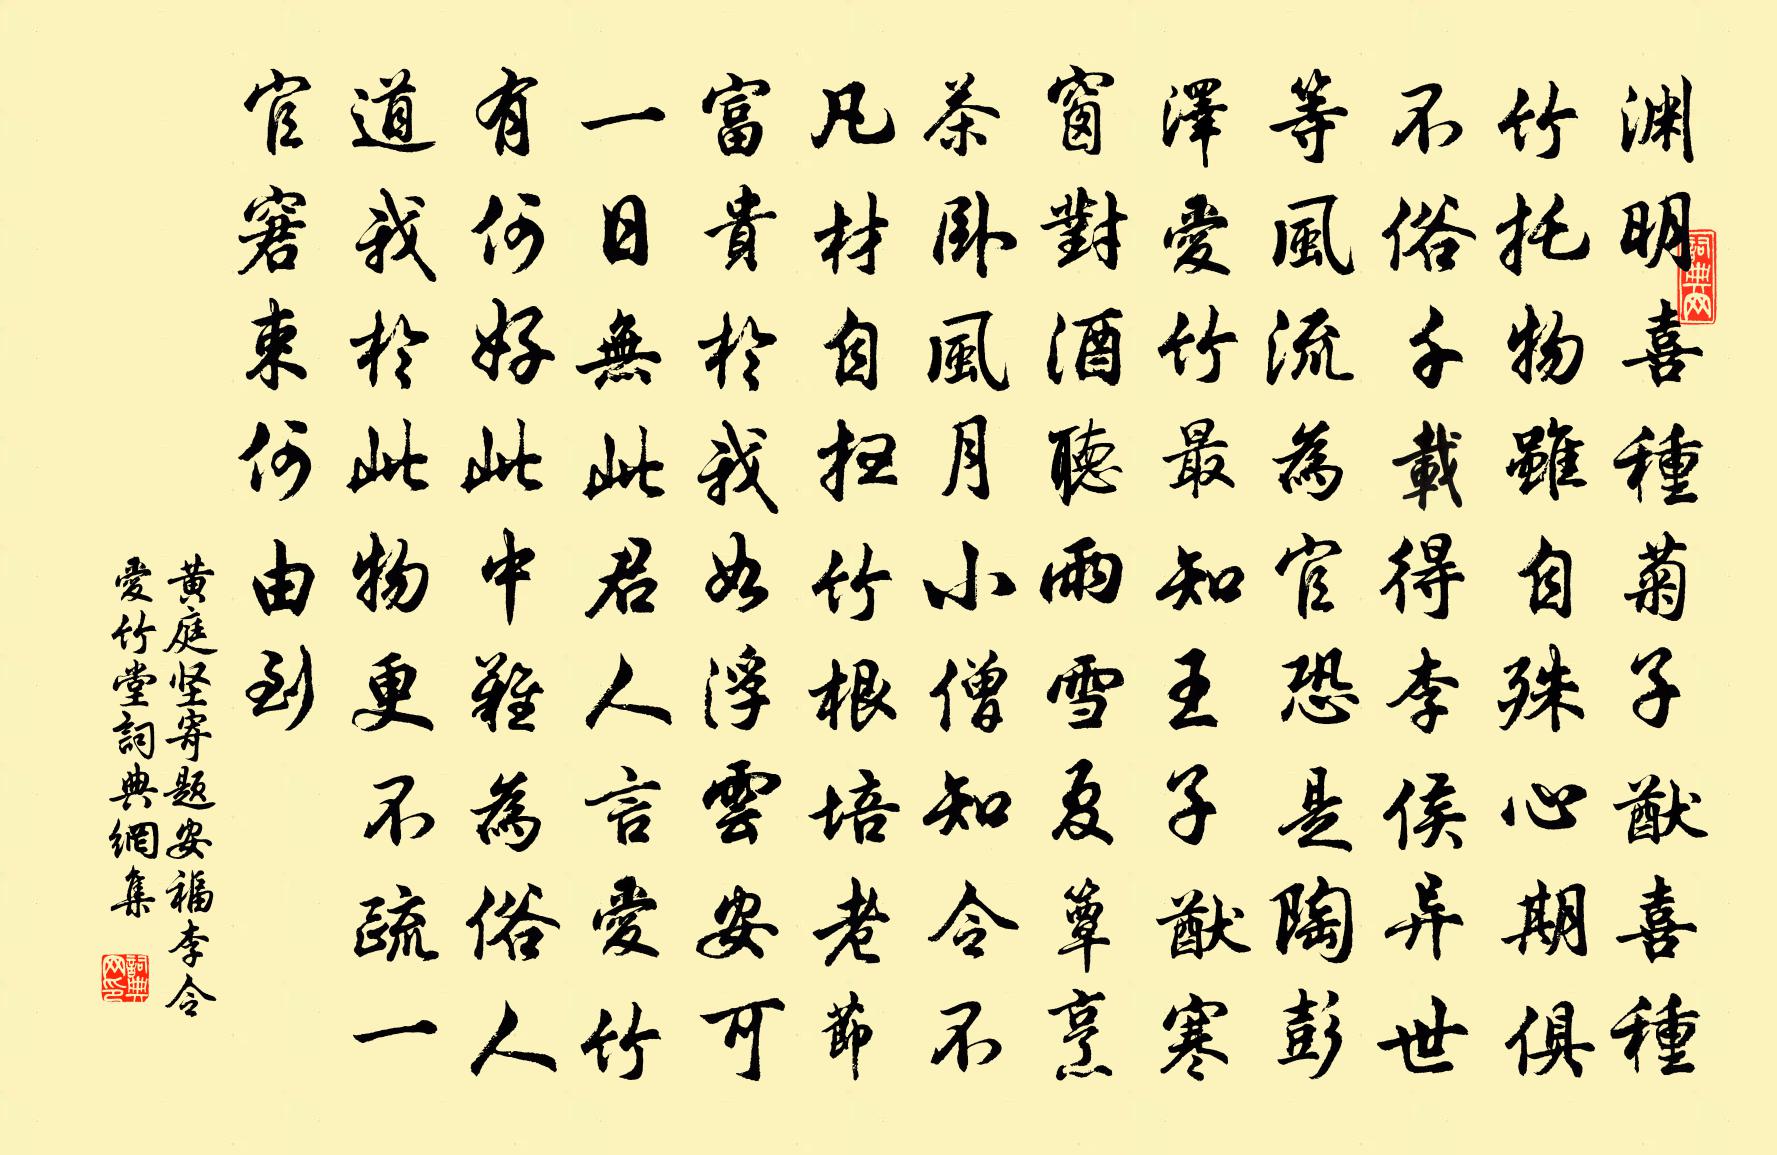 渊明喜種菊子猷喜種
竹托物雖自殊心期俱
不俗千載得李侯异世
等風流為官恐是陶彭
澤愛竹最知王子猷寒
窗對酒聽雨雪夏簟烹
茶卧風月小僧知令不
凡材自扫竹根培老節
富貴於我如浮雲安可
一日無此君人言愛竹
有何好此中難為俗人
道我於此物更不疏一
官窘束何由到
黄庭坚寄题安福李令
愛竹堂詞典網集
詞典网
詞典网印